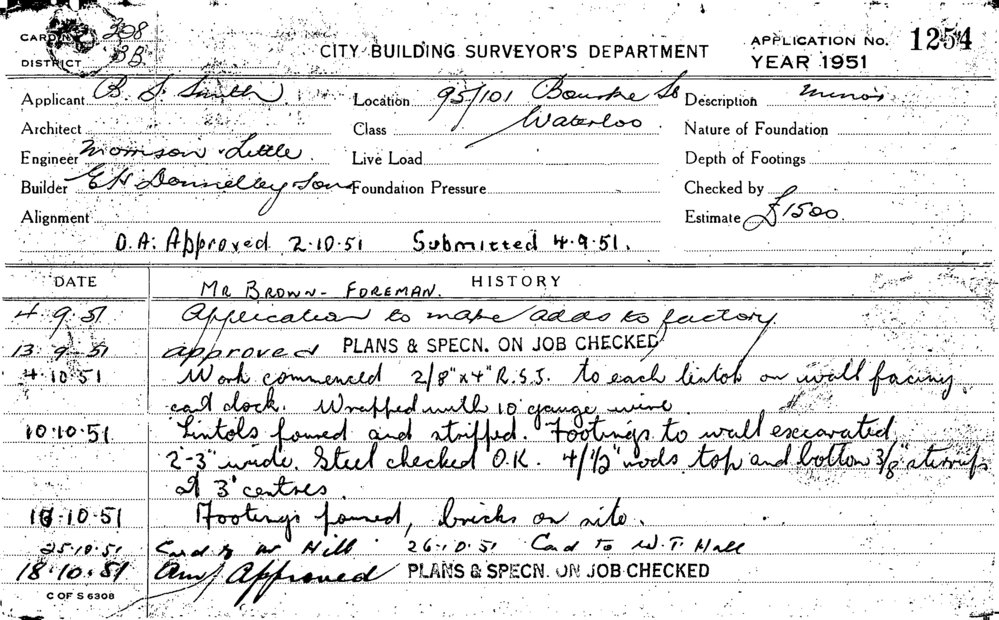 CARD No. 308
CITY BUILDING SURVEYOR'S DEPARTMENT
APPLICATION No. 1254
DISTRICT BB
YEAR 1951
Applicant B. J. Smith
Location 95/101 Bourke St
Description minor
Architect
Class Waterloo
Nature of Foundation
Engineer Morrison & Little
Live Load
Depth of Footings
Builder E H Donnelley Sons
Foundation Pressure
Checked by
Alignment
Estimate £1500
D.A: Approved 2.10.51 Submitted 4.9.51.
DATE HISTORY
MR BROWN - FOREMAN.
4.9.51 Application to make adds to factory
13.9.51 approved PLANS & SPECN. ON JOB CHECKED
4.10.51 Work commenced 2/8"x4" R.S.J. to each lintol on wall facing
cart dock. Wrapped with 10 gauge wire.
10.10.51 Lintols poured and stripped. Footings to wall excavated
2'-3" wide. Steel checked O.K. 4/1/2" rods top and bottom 3/8" stirrups
at 3' centres.
16.10.51 Footings poured, bricks on site.
25.10.51 Card to Mr Hill 26.10.51 Card to W.T. Hall
18.10.51 Am/ Approved PLANS & SPECN. ON JOB CHECKED
C OF S 6308